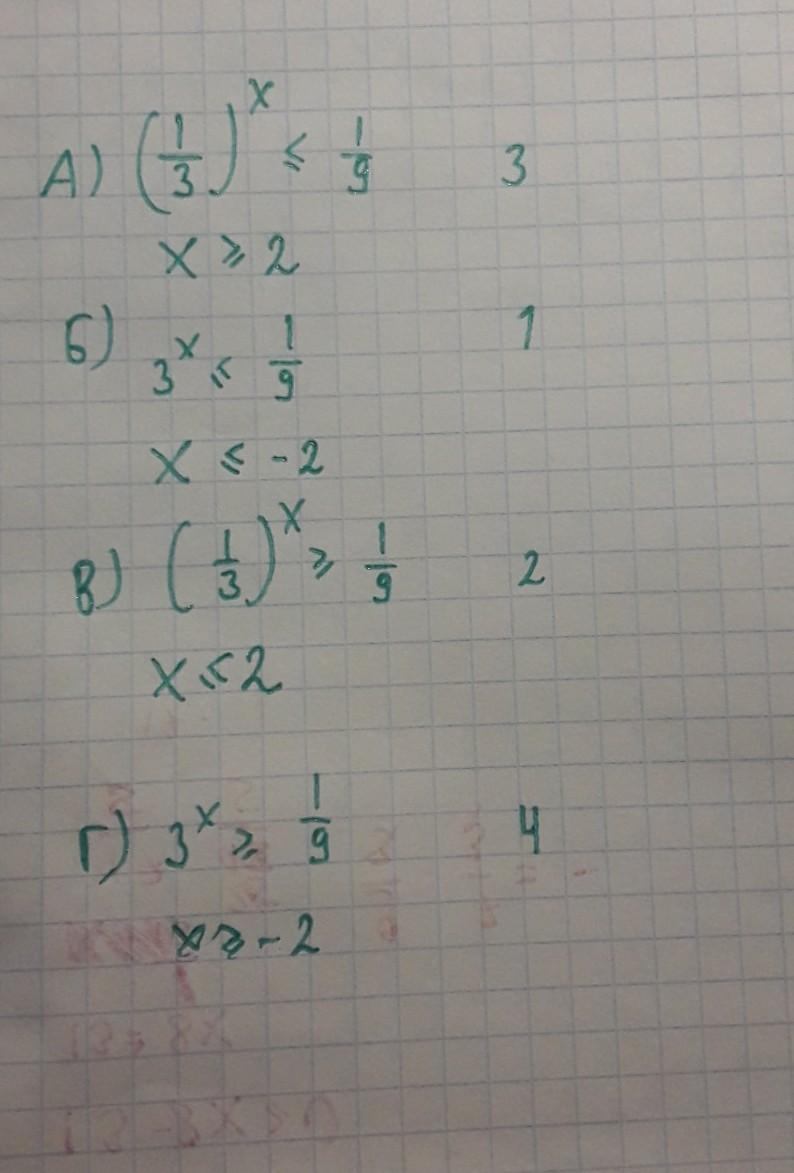 А) (1/3)^x ⩽ 1/9 3
x ⩾ 2
б) 3^x ⩽ 1/9 1
x ⩽ -2
в) (1/3)^x ⩾ 1/9 2
x ⩽ 2
г) 3^x ⩾ 1/9 4
x ⩾ -2